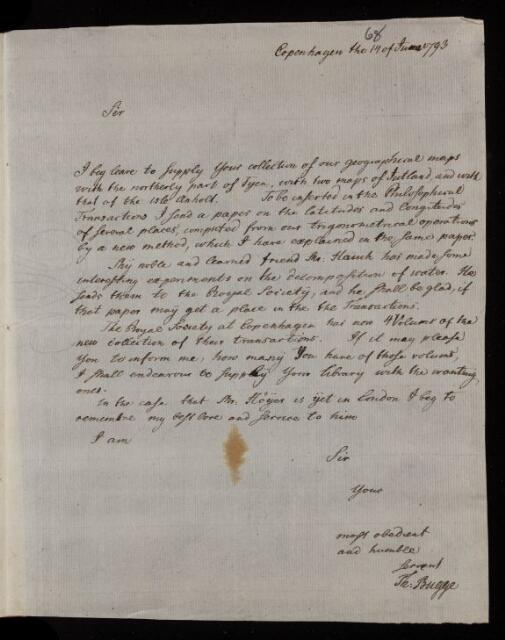 68
Copenhagen the 17 of June 1793
Sir
I beg leave to supply Your collection of our geographical maps
with the northerly part of Fyen, with two maps of Jutland, and with
that of the isle Anholt. To be inserted in the Philosophical
Transactions I send a paper on the latitudes and longitudes
of several places, computed from our trigonometrical operations
by a new method, which I have explained in the same paper.
My noble and learned friend Mr. Hauch has made some
interesting experiments on the decomposition of water. He
sends them to the Royal Society, and he shall be glad, if
that paper may get a place in the Transactions.
The Royal Society at Copenhagen has now 4 Volums of the
new collection of their transactions. If it may please
You to inform me, how many You have of those volums,
I shall endeavour to supply Your library with the wanting
ones.
In the case that Mr. Höyer is yet in London I beg to
remember my best love and service to him
I am
Sir
Your
most obedient
and humble
servent
Th: Bugge